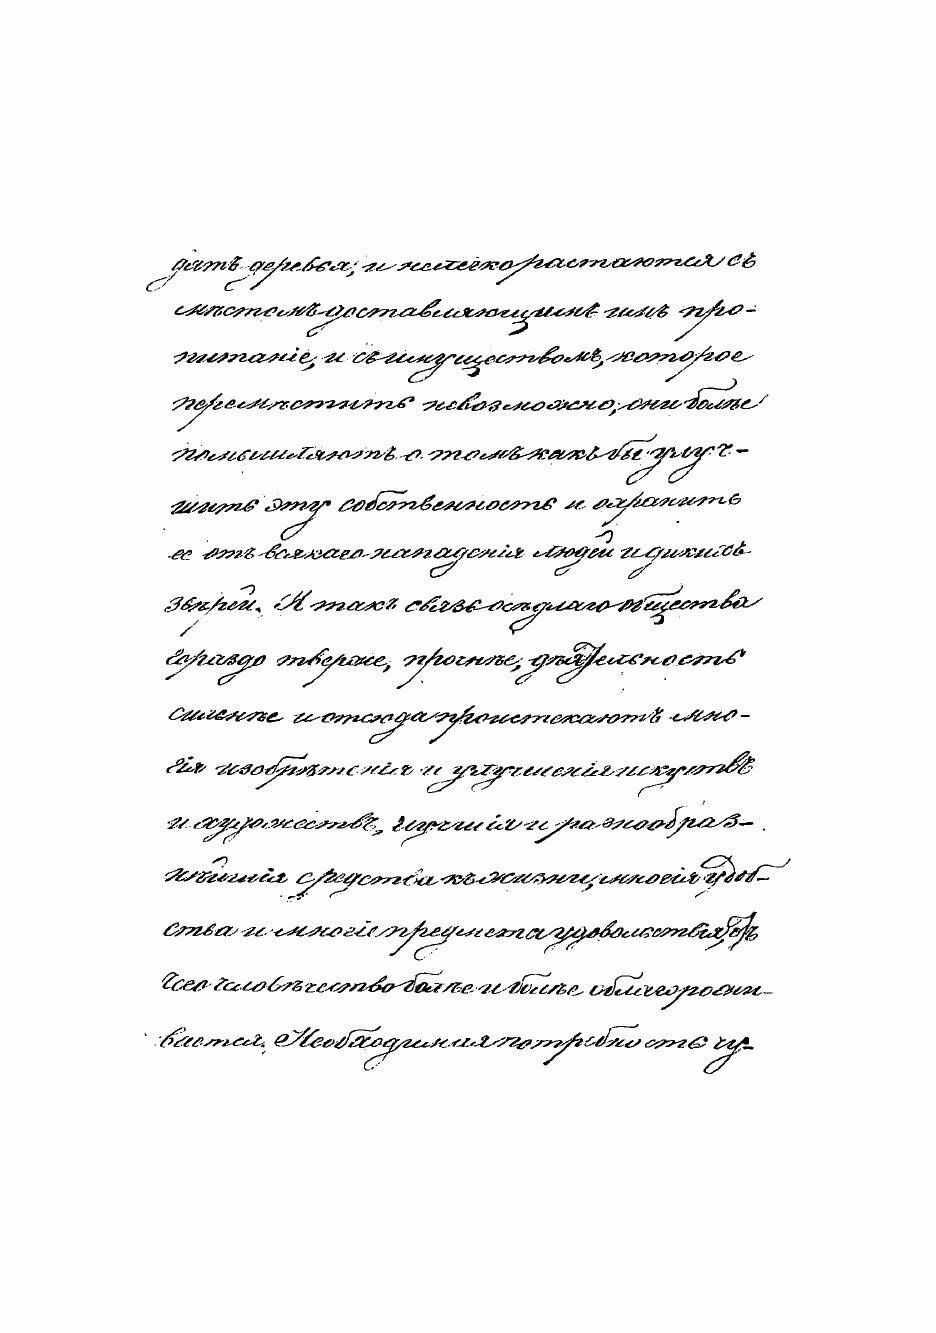 дятъ деревья; и нелегко растаются съ
мѣстомъ доставляющимъ имъ про-
питаніе, и съ имуществомъ, которое
перемѣстить невозможно; они болѣе
помышляютъ о томъ какъ бы улуч-
шить эту собственность и охранить
ее отъ всякаго нападенія людей и дикихъ
звѣрей. И такъ связь осѣдлаго общества
гораздо тверже, прочнѣе, дѣятельность
сильнѣе и отсюда проистекаютъ мно-
гія изобрѣтенія и улучшенія искуствъ
и художествъ, лучшія и разнообраз-
нѣйшія средства къ жизни, многія удоб-
ства и многіе предмета удовольствія, отъ
чего человѣчество болѣе и болѣе облагорожи-
вается. Необходимая потребность чу-